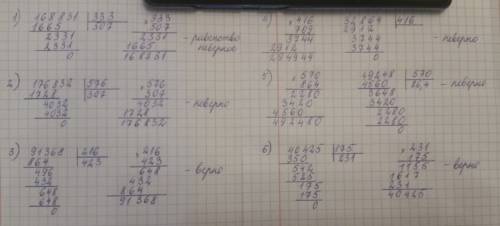 1) 168831 | 333
1665 | 507
2331
2331
0
× 333
507
2331
1665
168831
- равенство
неверное
2) 176832 | 576
1728 | 307
4032
4032
0
× 576
307
4032
1728
176832
- неверно
3) 91368 | 216
864 | 423
496
432
648
648
0
× 216
423
648
432
864
91368
- верно
4) × 416
709
3744
2912
294944
32864 | 416
2912
3744
3744
0
- неверно
5) × 570
864
2280
3420
4560
492480
49248 | 570
4560 | 86,4
3648
3420
2280
2280
0
- неверно
6) 40425 | 175
350 | 231
542
525
175
175
0
× 231
175
1155
1617
231
40420
- верно